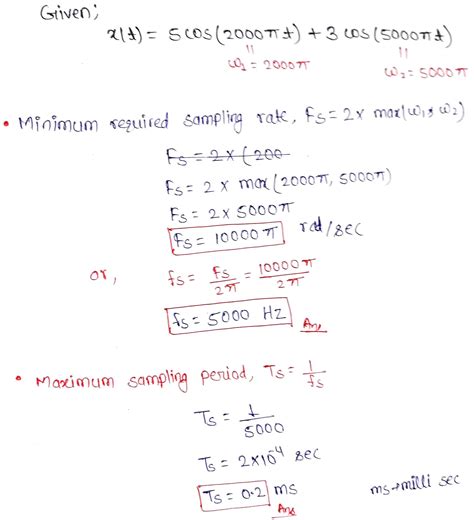 Given;
x(t) = 5 cos(2000πt) + 3 cos(5000πt)
ω₁ = 2000π
ω₂ = 5000π
• Minimum required sampling rate, Fs = 2 × max(ω₁, ω₂)
Fs = 2 × (200
Fs = 2 × max(2000π, 5000π)
Fs = 2 × 5000π
Fs = 10000π rad/sec
or, fs = Fs/2π = 10000π/2π
fs = 5000 Hz Ans
• Maximum sampling period, Ts = 1/fs
Ts = 1/5000
Ts = 2×10⁻⁴ sec
Ts = 0.2 ms ms→milli sec
Ans